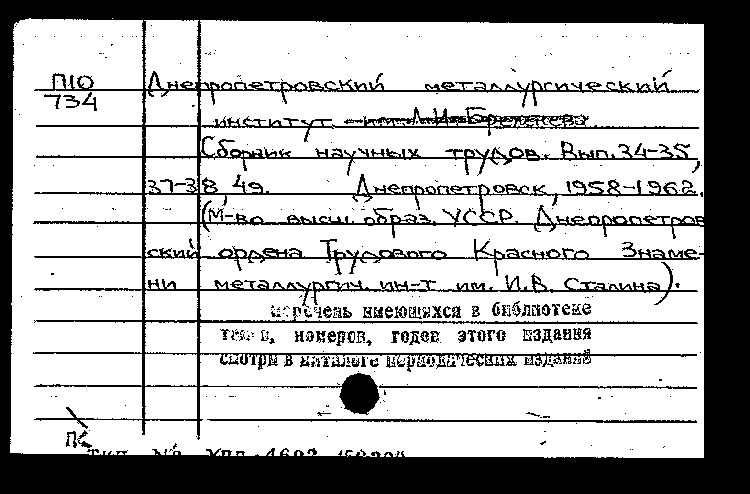 П10
734
Днепропетровский металлургический
институт им. Л.И. Брежнева
Сборник научных трудов. Вып. 34-35,
37-38, 49. Днепропетровск, 1958-1962.
(М-во высш. образ. УССР. Днепропетров
ский ордена Трудового Красного Знаме-
ни металлургич. ин-т им. И.В. Сталина).
Перечень имеющихся в библиотеке
томов, номеров, годов этого издания
смотри в каталоге периодических изданий